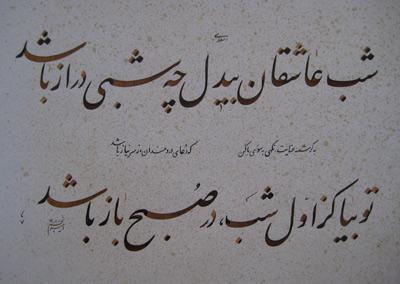 شب عاشقان بیدل چه شبی دراز باشد
به کرشمه عنایت نگهی بسوی ما کن که دعای دردمندان ز سر نیاز باشد
تو بیا کز اول شب، در صبح باز باشد